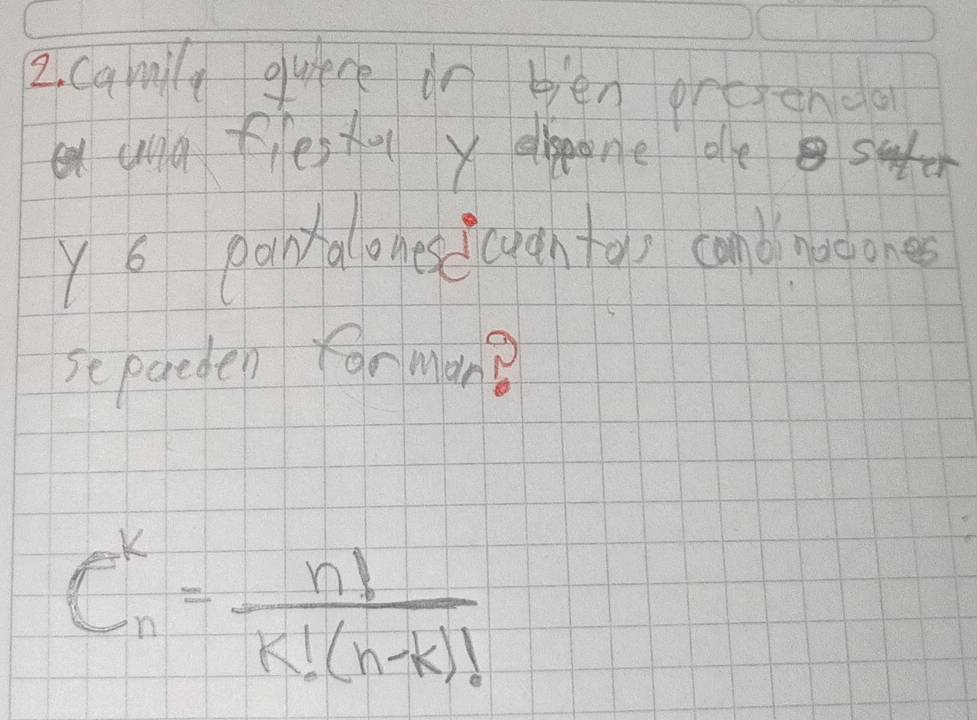 2. Camila quiere ir bien presenda
a una fiesta y dispone de 8 suter
y 6 pantalones ¿cuantas combinaciones
se pueden forman?
C^k_n = n! / k!(n-k)!